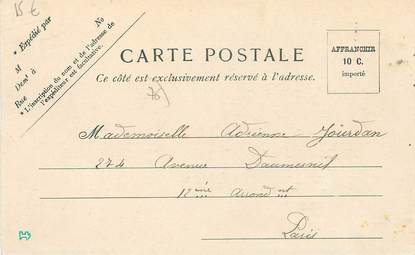 15 €
* Expédié par
M
Demt à
Rue No
* L'inscription du nom et de l'adresse de
l'expéditeur est facultative.
CARTE POSTALE
Ce côté est exclusivement réservé à l'adresse.
AFFRANCHIR
10 C.
importé
Mademoiselle Adrienne Jourdan
274 Avenue Daumesnil
12ème Arrond nt
Paris